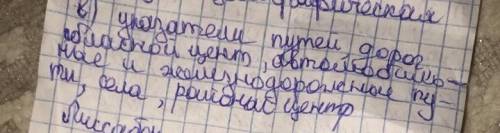 графическая
в) указатели путей дорог
областной центр, автомобиль-
ные и железнодорожные пу-
ти, села, районная центр